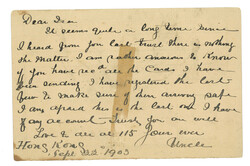 Dear Ina
It seems quite a long time since
I heard from you last trust there is nothing
the matter. I am rather anxious to know
if you have rec'd all the Cards I have
been sending. I have registered the last
few to make sure of them arriving safe
I am afraid some of the last one I have
if any account trust you are well
Love to all at 115 yours ever
Hong Kong Uncle
Sept 22 1903